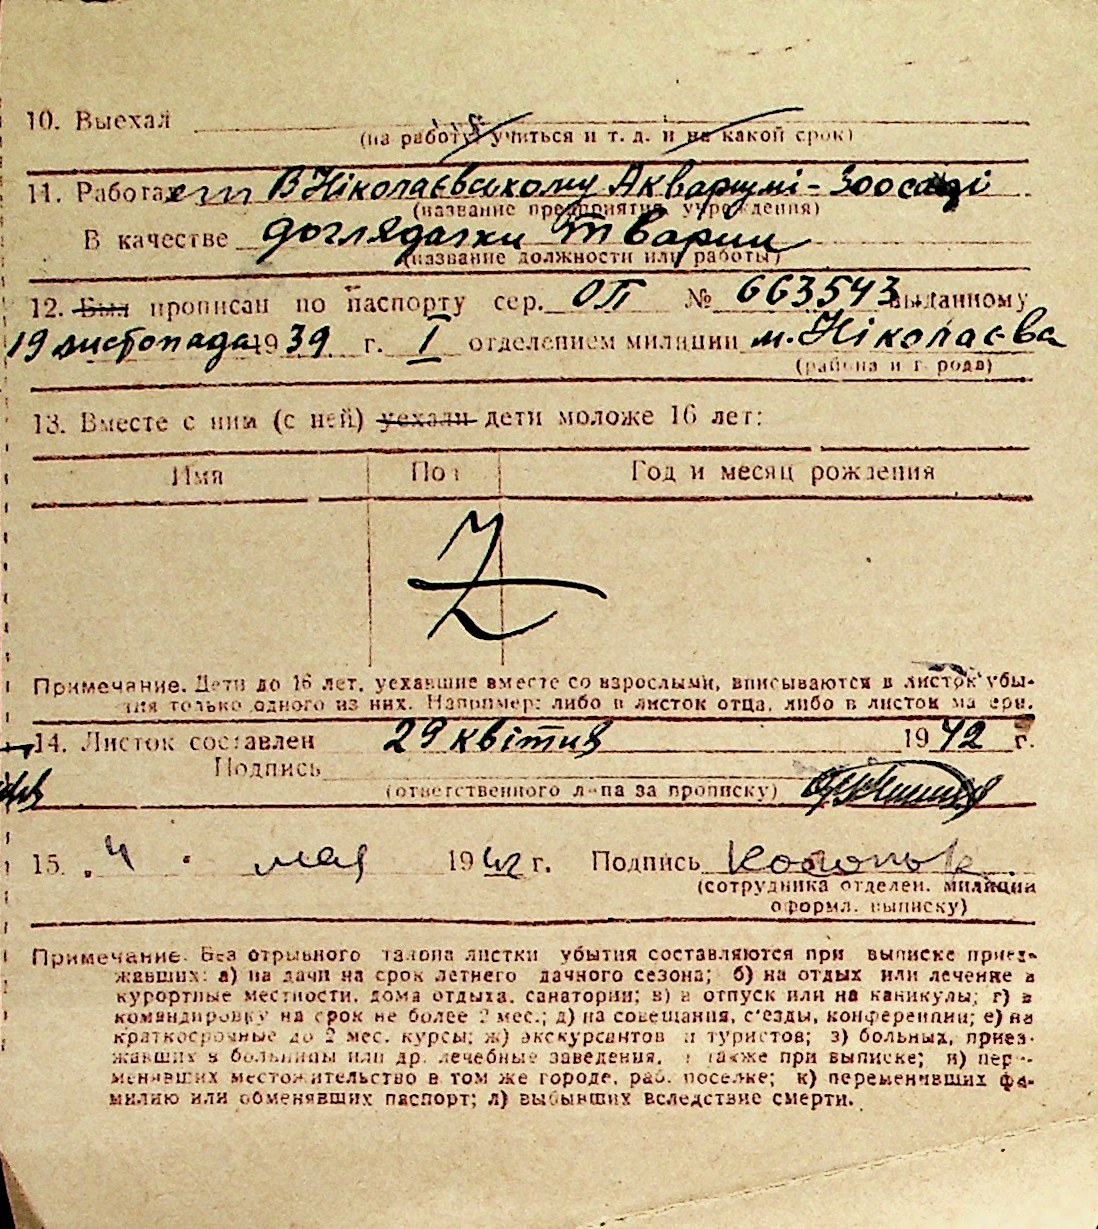 10. Выехал
(на работу, учиться и т. д. и на какой срок)
11. Работает в Ніколаєвському Акваріумі-Зоосаді
(название предприятия, учреждения)
В качестве доглядачки тварин
(название должности или работы)
12. Был прописан по паспорту сер. ОП № 663543 выданному
19 листопада 1939 г. I отделением милиции м. Ніколаєва
(района и города)
13. Вместе с ним (с ней) уехали дети моложе 16 лет:
Имя Пол Год и месяц рождения
Z
Примечание. Дети до 16 лет, уехавшие вместе со взрослыми, вписываются в листок убы-
тия только одного из них. Например: либо в листок отца, либо в листок матери.
14. Листок составлен 29 квітня 1942 г.
Подпись
(ответственного лица за прописку)
15. „4 " мая 1942 г. Подпись
(сотрудника отделен. милиции
оформл. выписку)
Примечание. Без отрывного талона листки убытия составляются при выписке приез-
жавших: а) на дачи на срок летнего дачного сезона; б) на отдых или лечение в
курортные местности, дома отдыха, санатории; в) в отпуск или на каникулы; г) в
командировку на срок не более 2 мес.; д) на совещания, с'езды, конференции; е) на
краткосрочные до 2 мес. курсы; ж) экскурсантов и туристов; з) больных, приез-
жавших в больницы или др. лечебные заведения, а также при выписке; и) пере-
менивших местожительство в том же городе, раб. поселке; к) переменивших фа-
милию или обменявших паспорт; л) выбывших вследствие смерти.